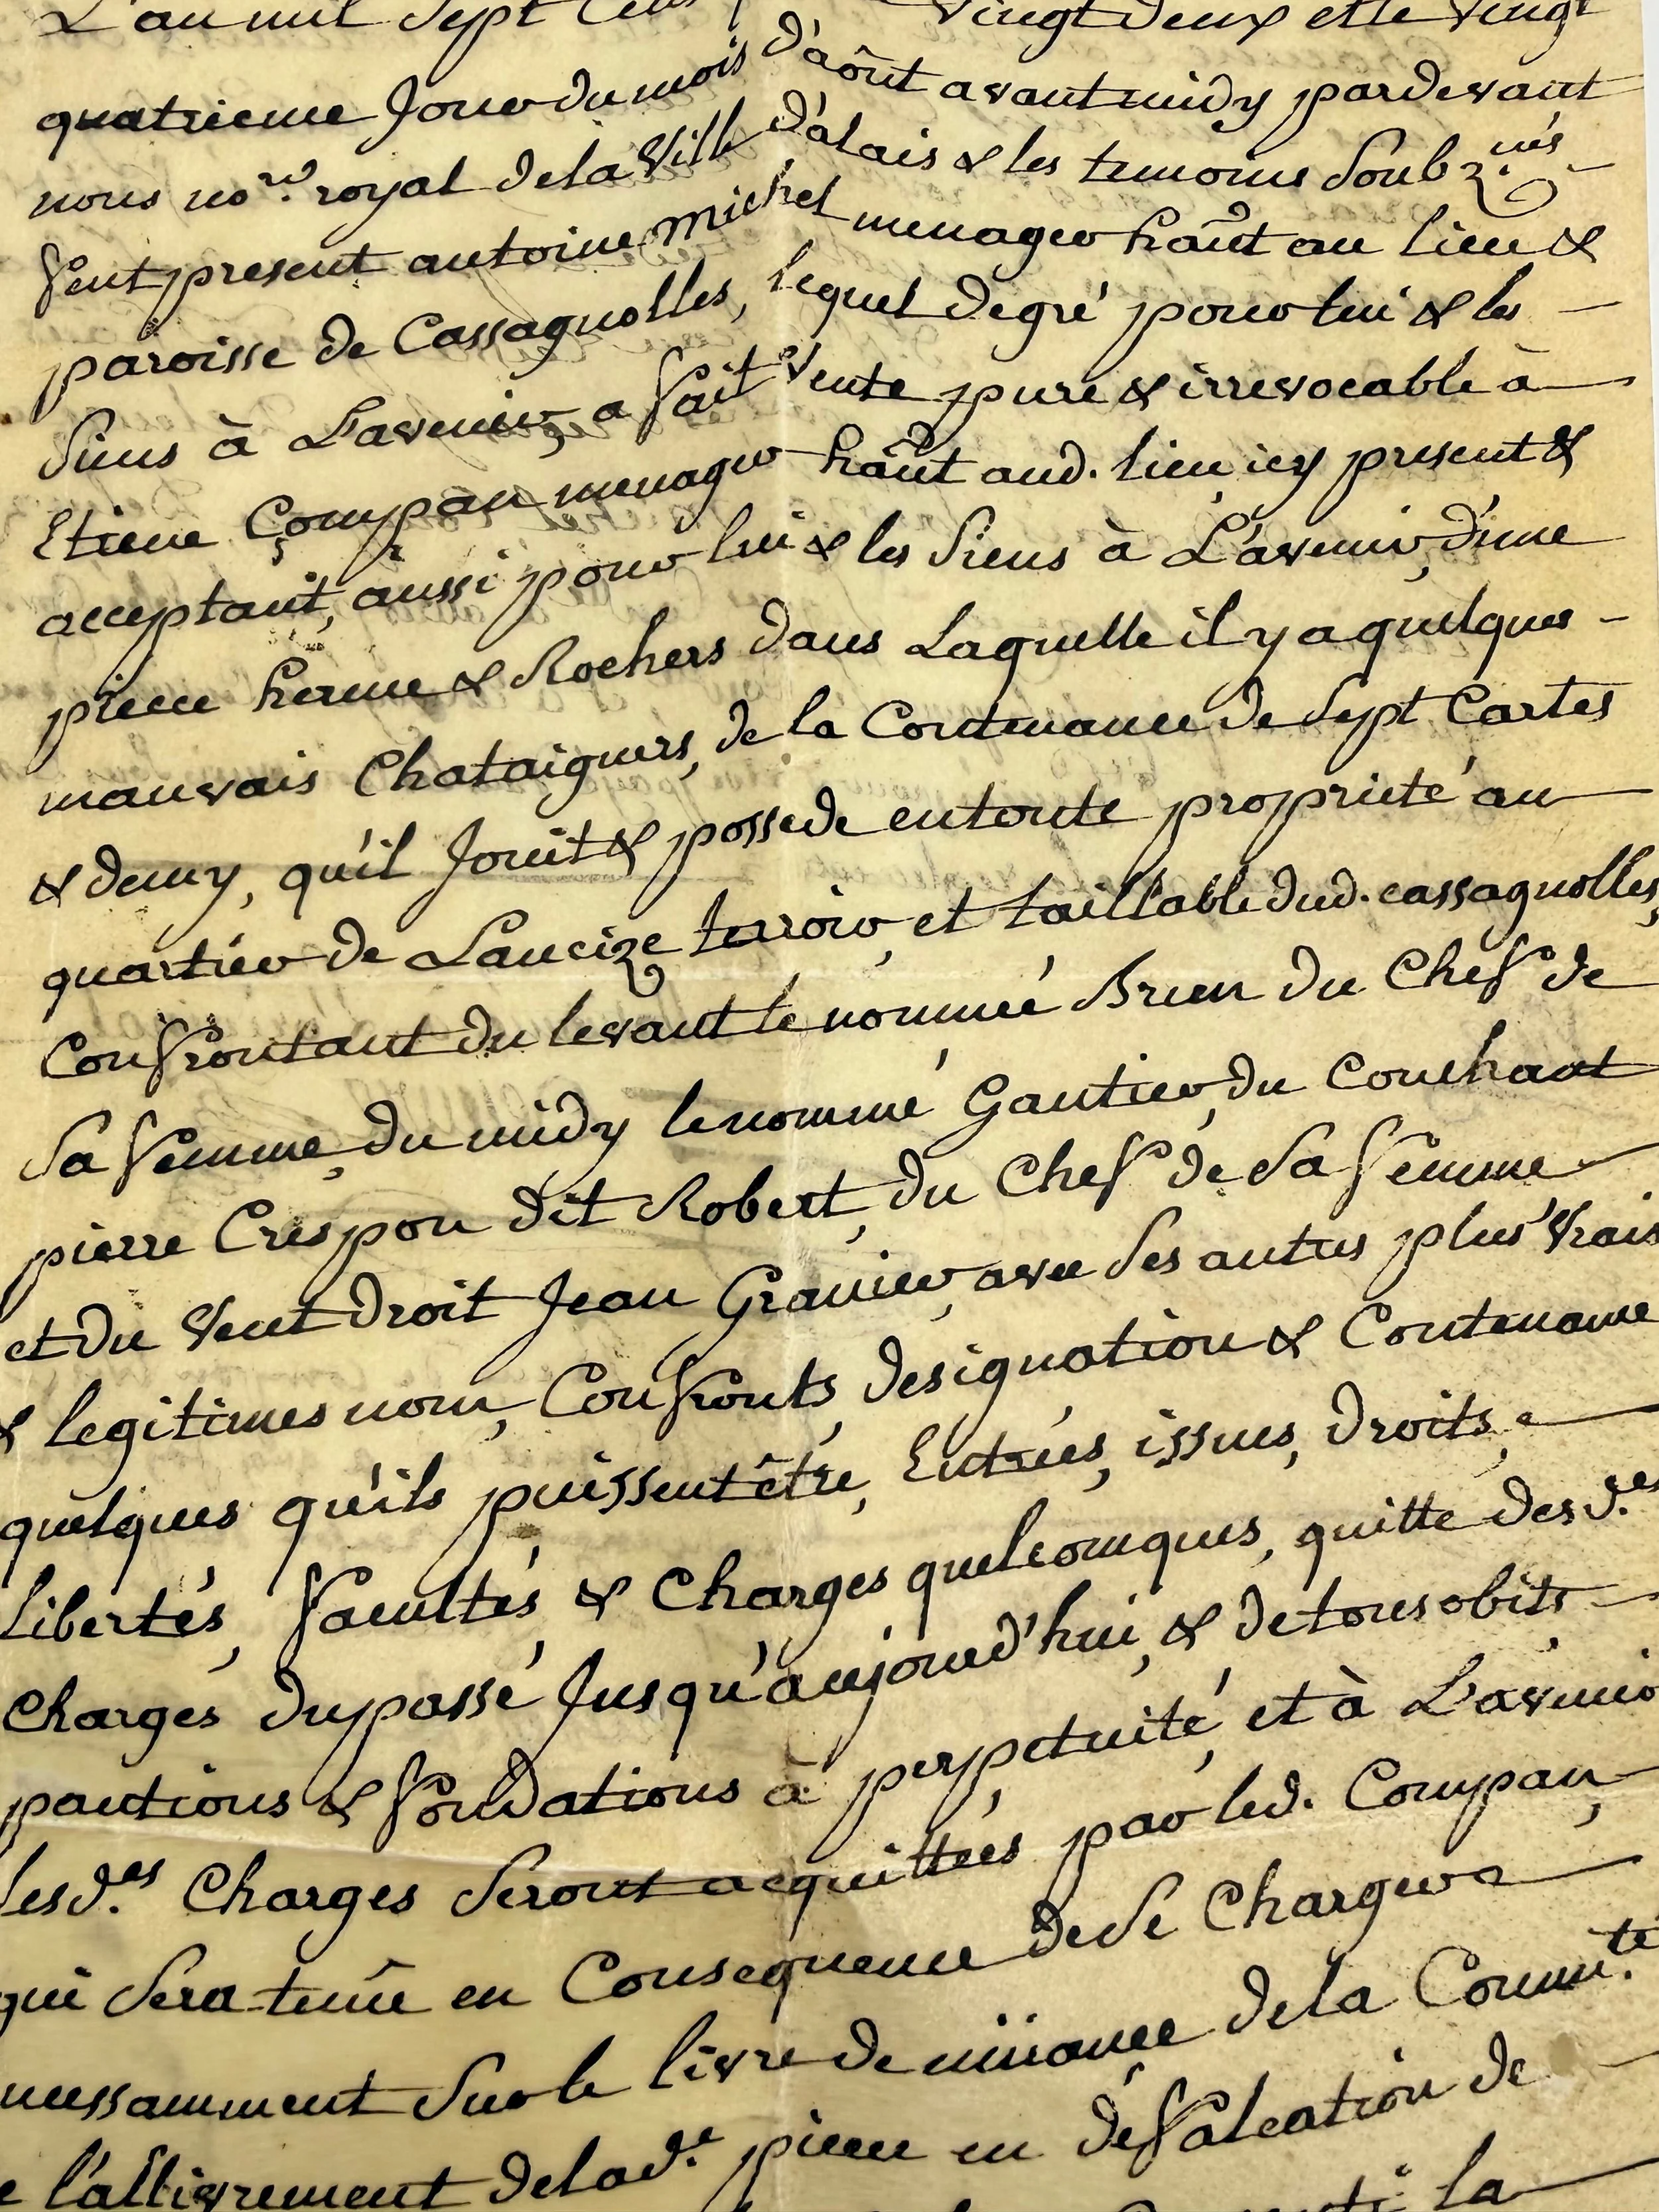 L'an mil sept cens vingt deux et le vingt
quatrieme Jour du mois d'août avant midy pardevant
nous no.re royal de la Ville d'alais & les temoins soubz.nés
feut present antoine michel menager hãnt au lieu &
paroisse de Cassagnolles, lequel de gré pour lui & les
siens à L'avenir, a fait Vente pure & irrevocable à
Etiene Compan menager hãnt aud. lieu icy present &
acceptant, aussi pour lui & les siens à L'avenir, d'une
piece herme & Rochers dans Laquelle il y a quelques
mauvais Chataigners, de la Contenance de sept Cartes
& demy, qu'il Jouit & possede en toute proprieté au
quartier de Laucize terroir, et taillable dud. cassagnolles,
Confrontant du levant le nommé Brun du Chef de
sa femme, du midy le nommé Gautier, du Couchant
pierre Crespon dit Robert, du Chef de sa femme
et du Vent droit Jean Granier, avec ses autres plus Vrais
& legitimes nom, Confronts, designation & Contenance
quelques qu'ils puissent être, Entrées, issues, droits,
Libertés, facultés & Charges quelconques, quitte desd.es
Charges du passé Jusqu'à aujourd'hui, & de tous obits,
pantions & fondations à perpetuité, et à L'avenir
lesd.es Charges seront acquittées par led. Compan,
qui sera tenû en Consequence de se Charger
incessamment sur le livre de muance de la Comm.té
de l'allivrement de lad.e piece en defalcation de
la